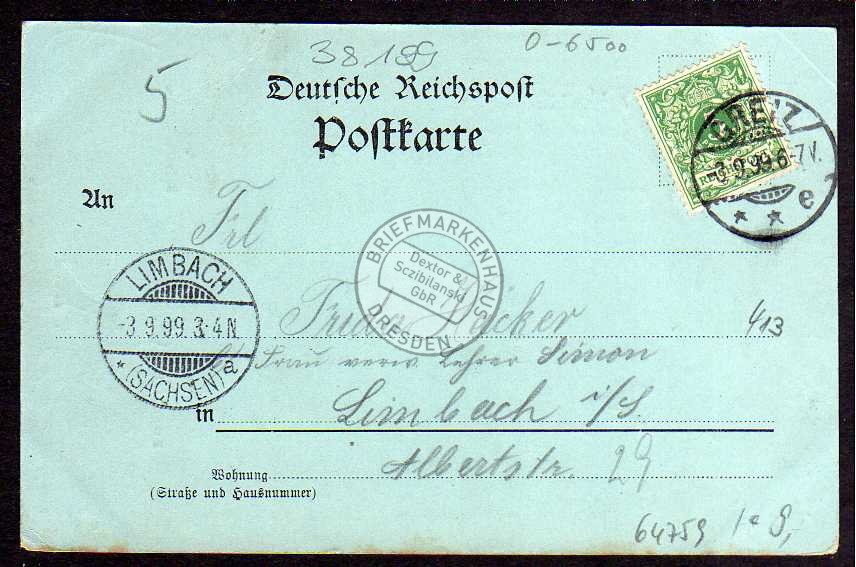 38189
0-6500
5
Deutsche Reichspost
Postkarte
GREIZ
3.9.99.6-7V.
* * e
An
Frl
BRIEFMARKENHAUS
Dextor &
Sczibilanski
GbR
DRESDEN
LIMBACH
-3.9.99.3-4N.
* (SACHSEN) a
Frida Häcker
413
Frau verw. Lehrer Simon
in
Limbach i/S.
Wohnung
(Straße und Hausnummer)
Albertstr. 29
64759